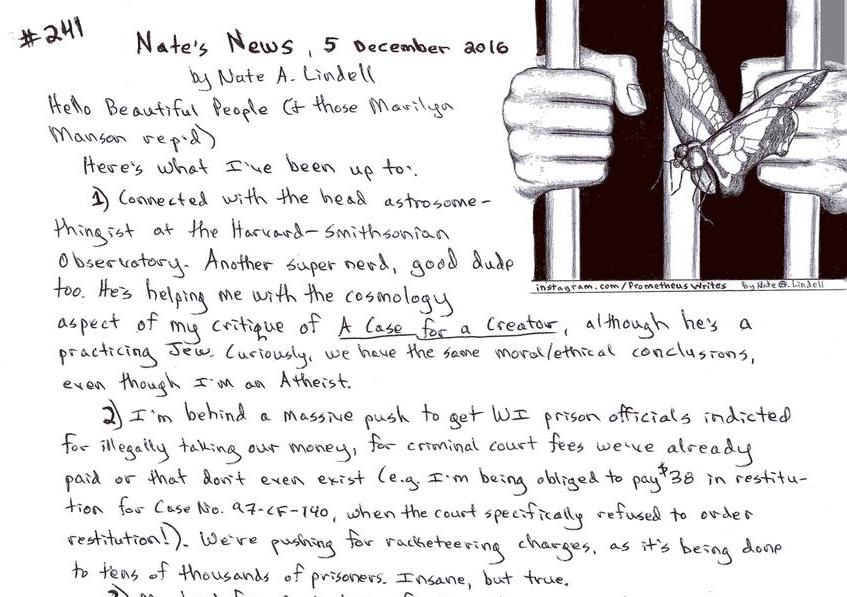 #241
Nate's News, 5 December 2016
by Nate A. Lindell
Hello Beautiful People (& those Marilyn
Manson rep'd)
Here's what I've been up to:
1) Connected with the head astrosome-
thingist at the Harvard-Smithsonian
Observatory. Another super nerd, good dude
too. He's helping me with the cosmology
aspect of my critique of A Case for a Creator, although he's a
practicing Jew. Curiously, we have the same moral/ethical conclusions,
even though I'm an Atheist.
2) I'm behind a massive push to get WI prison officials indicted
for illegally taking our money, for criminal court fees we've already
paid or that don't even exist (e.g. I'm being obliged to pay $38 in restitu-
tion for Case No. 97-CF-140, when the court specifically refused to order
restitution!). We're pushing for racketeering charges, as it's being done
to tens of thousands of prisoners. Insane, but true.
instagram.com/Prometheus Writes by Nate A. Lindell